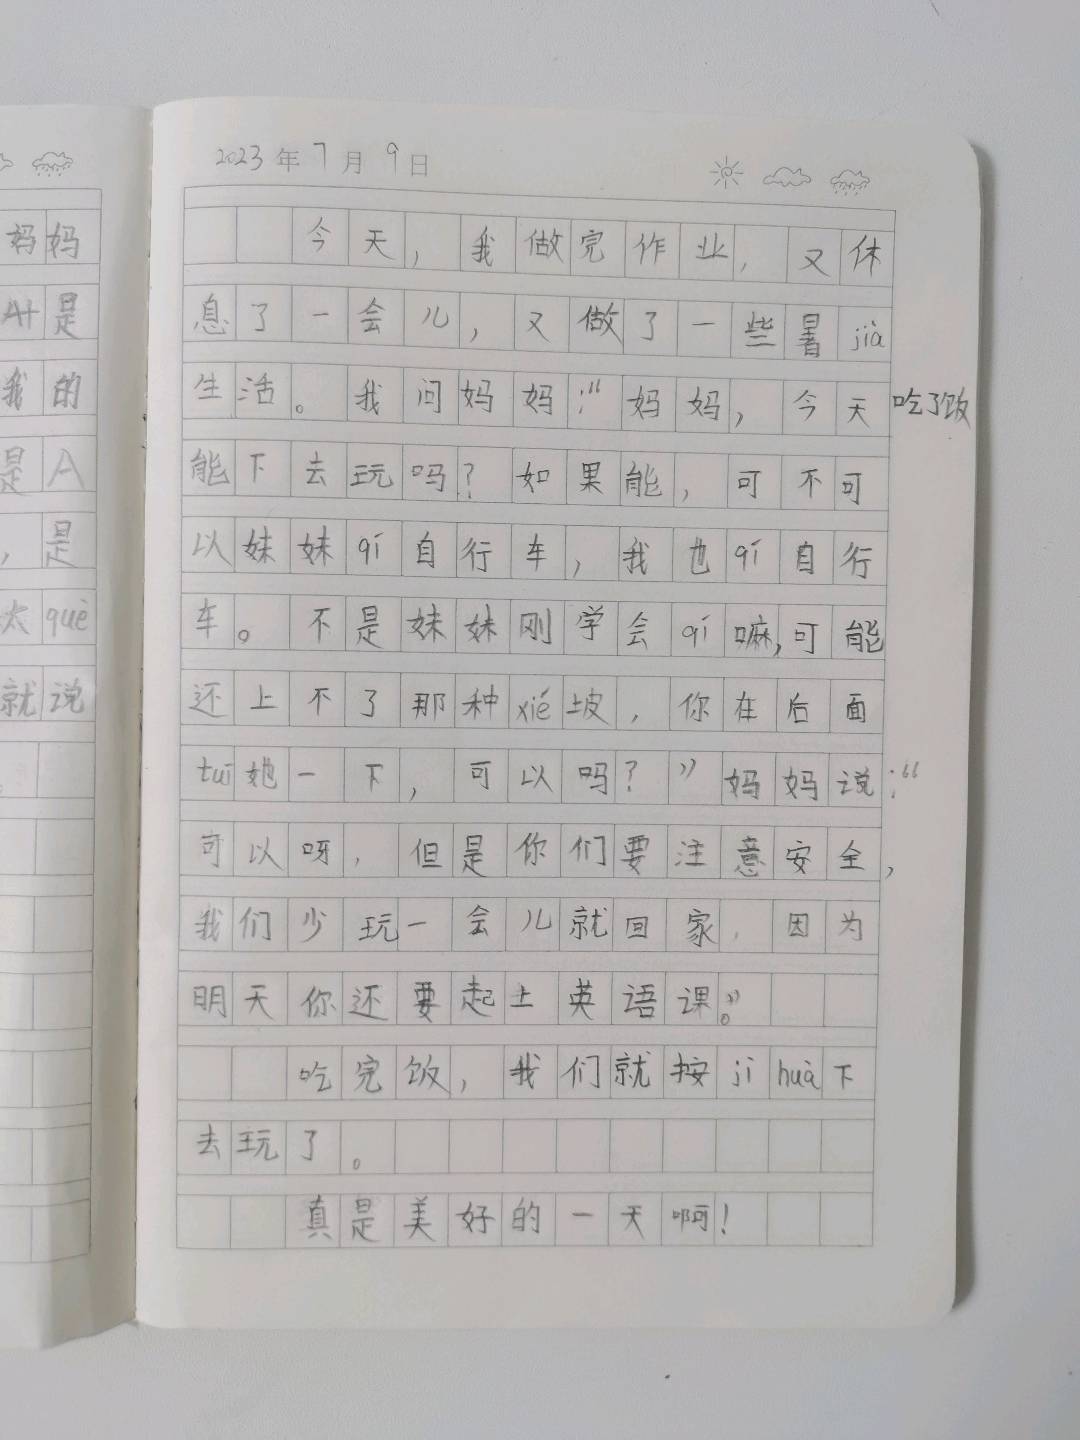 妈妈
A+是
我的
是A
，是
太què
就说
。
2023年7月9日
今天，我做完作业，又休
息了一会儿，又做了一些暑jià
生活。我问妈妈：“妈妈，今天吃了饭
能下去玩吗？如果能，可不可
以妹妹qí自行车，我也qí自行
车。不是妹妹刚学会qí嘛，可能
还上不了那种xié坡，你在后面
tuī她一下，可以吗？”妈妈说：“
可以呀，但是你们要注意安全，
我们少玩一会儿就回家，因为
明天你还要起上英语课。”
吃完饭，我们就按jì huà下
去玩了。
真是美好的一天啊！